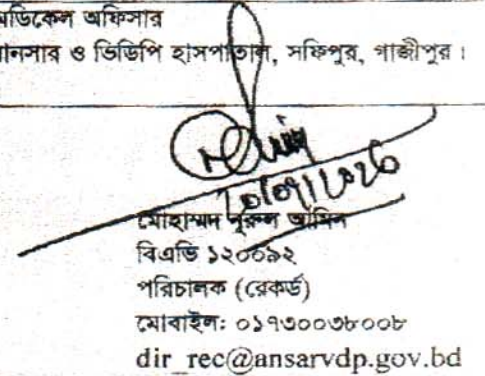 মেডিকেল অফিসার
আনসার ও ভিডিপি হাসপাতাল, সফিপুর, গাজীপুর।
মোহাম্মদ নূরুল আমিন
বিএভি ১২০০৯২
পরিচালক (রেকর্ড)
মোবাইলঃ ০১৭৩০০৩৮০০৮
dir_rec@ansarvdp.gov.bd